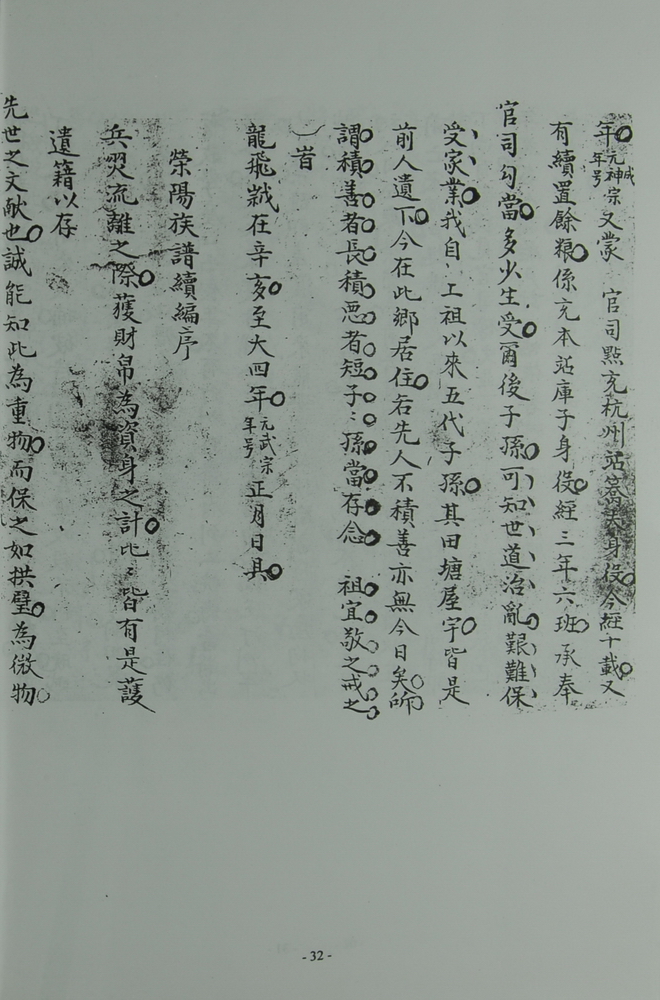 年元神宗年号又蒙　官司點充杭州站 夫身役今經十載又
有續置餘粮係充本站庫子身役經三年六班承奉
官司勾當多少生受爾後子孫可知世道治亂艱難保
受家業我自上祖以來五代子孫其田塘屋宇皆是
前人遺下今在此鄉居住若先人不積善亦無今日矣師
謂積善者長積惡者短子〻孫當存念　祖宜敬之戒之
旹
龍飛 在辛亥至大四年元武宗年号正月日具
榮陽族譜續編序
兵 流離之際獲財帛為資身之計比〻皆有是護
遺籍以存
先世之文献也誠能知此為重物而保之如拱璧為微物
- 32 -